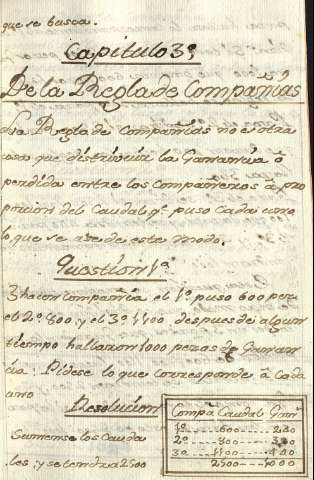 que se busca.
Capitulo 3º
De la Regla de Compañias
La Regla de Compañias no es otra
cosa que distrivuir la Ganancia ô
perdida entre los Compañeros â pro
porcion del Caudal qº puso Cada uno
lo que se ase de este modo.
Question 1ª
3 hacen compañia el 1º puso 600 pesos
el 2º 800, y el 3º 1100 despues de algun
tiempo hallaron 1000 pezos de Ganan
cia: Pidese lo que corresponde â Cada
uno
Resolucion
Sumense los Cauda
les, y se tendra 2500
Compª Caudal Gan.
1º 600 240
2º 800 320
3º 1100 440
2500 1000